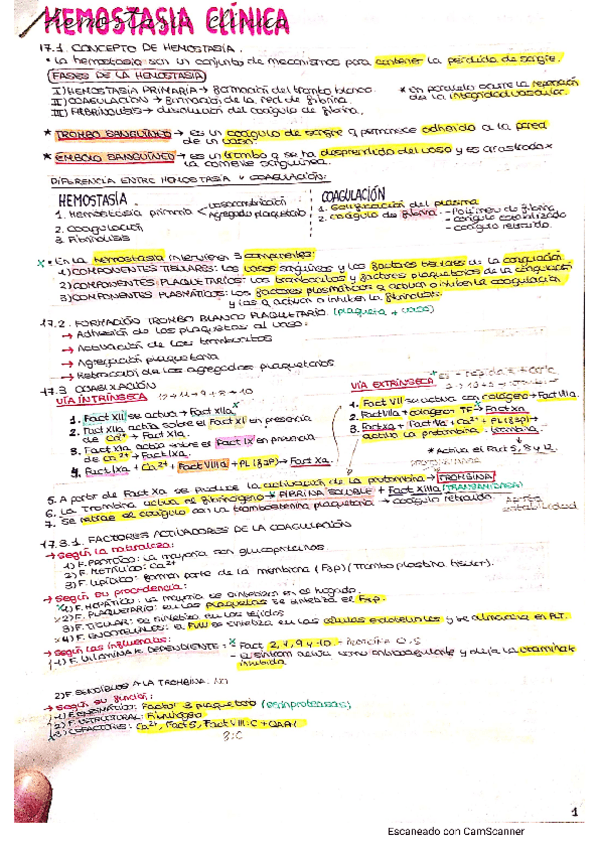 HEMOSTASIA CLÍNICA
17.1. CONCEPTO DE HEMOSTASIA.
• La hemostasia son un conjunto de mecanismos para contener la pérdida de sangre.
FASES DE LA HEMOSTASIA
I) HEMOSTASIA PRIMARIA → formación del trombo blanco.
* en paralelo ocurre la reparación de la integridad vascular.
II) COAGULACIÓN → formación de la red de fibrina.
III) FIBRINOLISIS → disolución del coágulo de fibrina.
* TROMBO SANGUÍNEO → es un coágulo de sangre q permanece adherido a la pared
de un vaso.
* EMBOLO SANGUÍNEO → es un trombo q se ha desprendido del vaso y es arrastrado x
la corriente sanguínea.
DIFERENCIA ENTRE HEMOSTASIA Y COAGULACIÓN:
HEMOSTASIA
1. Hemostasia primaria < vasoconstricción
Agregado plaquetario
2. Coagulación
3. Fibrinolisis
COAGULACIÓN
1. Gelificación del plasma
2. coágulo de fibrina - Polímero de fibrina
- coágulo estabilizado
- coágulo retraído.
* • En la hemostasia intervienen 3 componentes:
1) COMPONENTES TISULARES: los vasos sanguíneos y los factores tisulares de la coagulación
2) COMPONENTES PLAQUETARIOS: los trombocitos y factores plaquetarios de la coagulación
3) COMPONENTES PLASMÁTICOS: los factores plasmáticos q activan o inhiben la coagulación
y los q activan o inhiben la fibrinolisis.
17.2. FORMACIÓN TROMBO BLANCO PLAQUETARIO. (plaqueta + vaso)
→ Adhesión de las plaquetas al vaso.
→ Activación de los trombocitos
→ Agregación plaquetaria
→ Retracción de los agregados plaquetarios
17.3 COAGULACIÓN
VÍA INTRÍNSECA 12→11→9→8→10
1. Fact XII se activa → Fact XIIa
2. Fact XIIa actúa sobre el Fact XI en presencia
de Ca²⁺ → Fact XIa.
3. Fact XIa actúa sobre el Fact IX en presencia
de Ca²⁺ → Fact IXa.
4. Fact IXa + Ca²⁺ + Fact VIIIa + PL (F3P) → Fact Xa.
VÍA EXTRÍNSECA
1. Fact VII se activa con colágeno → Fact VIIa.
2. Fact VIIa + colágeno TF → Fact Xa
3. Fact Xa + (Fact Va + Ca²⁺ + PL (F3P)) →
activa la protombina. trombina
* Activa el Fact 5, 8 y 12
5. A partir de Fact Xa se produce la activación de la protombina → TROMBINA
6. La Trombina activa el fibrinógeno → FIBRINA SOLUBLE + Fact XIIIa (TRANSAMIDASA)
7. Se retrae el coágulo con la trombostenina plaquetaria → coágulo retraído
17.3.1. FACTORES ACTIVADORES DE LA COAGULACIÓN
→ Según la naturaleza:
1) F. PROTEICO: la mayoría son glucoproteínas
2) F. METÁLICO: Ca²⁺
3) F. LIPÍDICO: forman parte de la membrana (F3P) (Tromboplastina tisular).
→ Según su procedencia:
1) F. HEPÁTICO: la mayoría se sintetizan en el hígado.
2) F. PLAQUETARIO: en las plaquetas se sintetiza el F3P.
3) F. TISULAR: se sintetiza en los tejidos
4) F. ENDOTELIALES: el FVW se sintetiza en las células endoteliales y se almacena en PLT.
→ Según las influencias:
1) F. VITAMINA K DEPENDIENTE: * Fact 2, 7, 9 y 10.
- El sintrom actúa como anticoagulante y deja la vitamina K
inhibida
2) F. SENSIBLES A LA TROMBINA:
→ Según su función:
1) F. ENZIMÁTICO: Factor 3 plaquetario (serinproteasas)
2) F. ESTRUCTURAL: Fibrinógeno
3) COFACTORES: Ca²⁺, Fact 5, Fact VIII:C
8:C
1
Escaneado con CamScanner